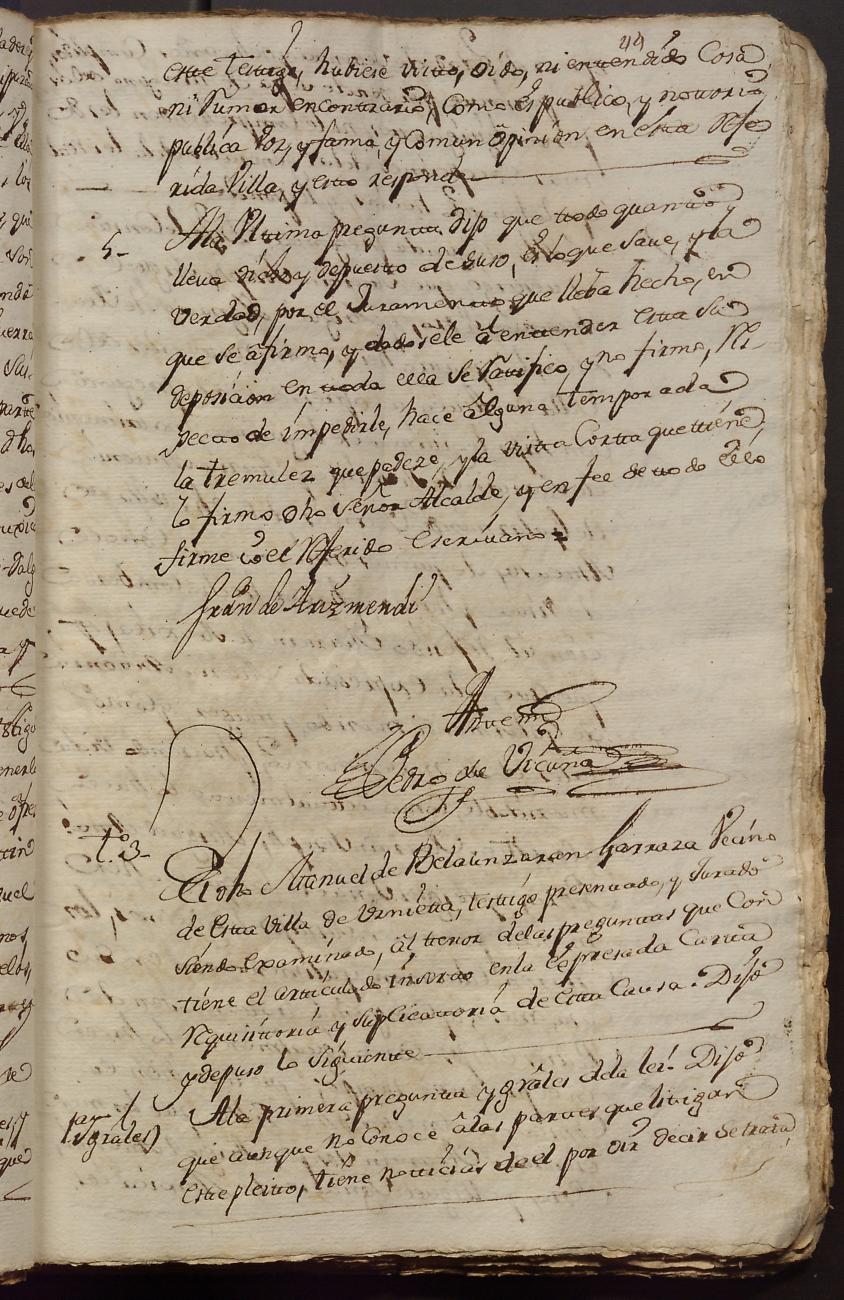 44
este testigo, hubiese visto, oido, ni entendido Cosa,
ni Rumor encontrario, Como es publico, y notorio,
publica Voz, y fama, y Comun opinion en esta Refe
rida Villa, y esto responde
5- Ala Ultima pregunta Dijo que todo quanto
lleva dicho y depuesto de suso, es lo que save, y la
Verdad, por el Juramento que lleba hecho, en
que se afirmo, y dadosele a entender esta su
deposicion en toda ella se ratifico y no firmo, Res
pecto de impedirle, hace alguna temporada
la tremulez que padeze, y la vista Corta que tiene,
lo firmo dho Señor Alcalde, y en fee de todo ello
firme io el Referido Escrivano =
Fran.co de Arizmendi
Ante mi
Pedro de Vicuña
t.o 3-
El dho Manuel de Belaunzaran Garraza Vecino
de Esta Villa de Urnieta, testigo presentado, y Jurado
siendo Examinado, al tenor delas preguntas que Con
tiene el articulado inserto enla Expresada Carta
Requisitoria y Suplicatoria de Esta Causa. Dijo
y depuso lo Siguiente
1.a y grãles Ala primera pregunta y grãles dela lei. Dijo
que aunque no Conoce alas partes que litigan
este pleito, tiene noticias de el por oir decir se trata,